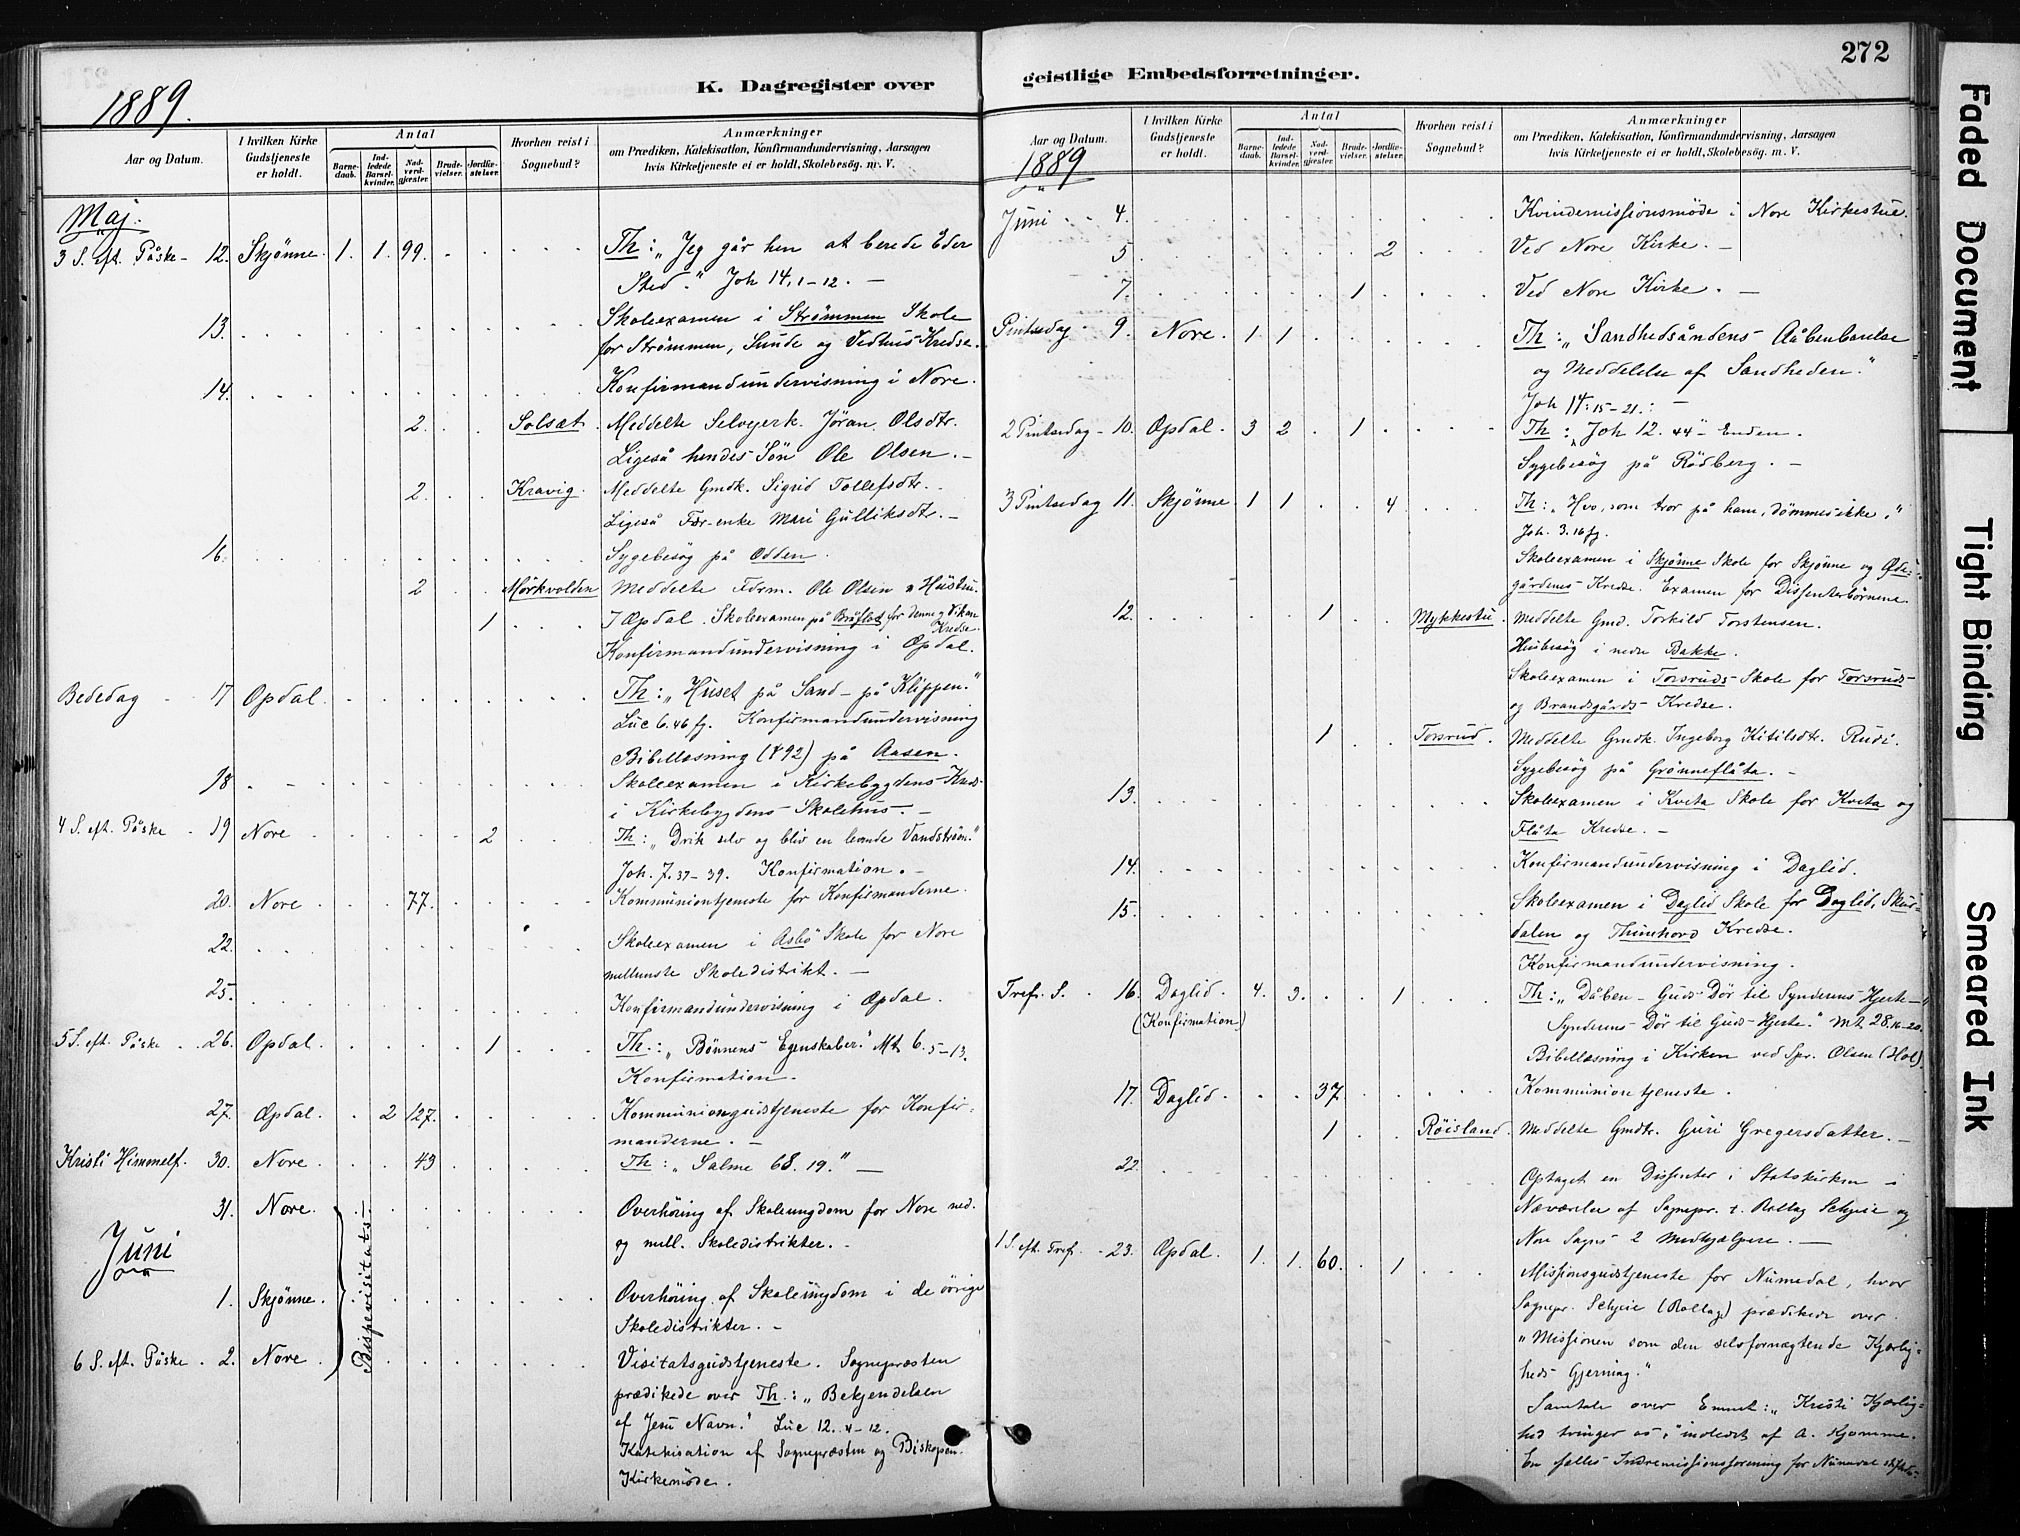 272
K. Dagregister over
geistlige Embedsforretninger.
1889.
Aar og Datum.
I hvilken Kirke Gudstjeneste er holdt.
Antal
Barnedaab.
Indledede Barselkvinder.
Nadverdgjester.
Brudevielser.
Jordfæstelser.
Hvorhen reist i Sognebud?
Anmærkninger
om Prædiken, Katekisation, Konfirmandundervisning, Aarsagen
hvis Kirketjeneste ei er holdt, Skolebesøg. m. V.
Maj.
3 S. eft. Påske - 12. Skjønne. 1. 1. 99. Th: "Jeg går hen at berede Eder
Sted." Joh 14, 1-12. -
13. Skoleexamen i Strømmen Skole
for Strømmen, Sunde og Vedhus Kredse.
14. Konfirmandundervisning i Nore.
2. Solsæt. Meddelte Selvejerk. Jøran Olsdtr.
Ligeså hendes Søn Ole Olsen. -
2. Kravig. Meddelte Gmdk. Sigrid Tollefsdtr. -
Ligeså Fær-enke Mari Gulliksdtr. -
16. Sygebesøg på Odden.
2 Mørkvolden Meddelte Form. Ole Olsen " Hustru.
1 I Opdal. Skoleexamen på Bråflat for denne og Vikan
Kredse.
Konfirmandundervisning i Opdal.
Bededag - 17 Opdal. Th: "Huset på Sand - på Klippen."
Luc 6. 46 fg. Konfirmandundervisning
Bibellæsning (ψ 92) på Aasen.
18 Skoleexamen i Kirkebygdens Kreds
i Kirkebygdens Skolehus. -
4 S. eft. Påske - 19 Nore. 2 Th: "Drik selv og bliv en levende Vandstrøm."
Joh. 7. 37-39. Konfirmation. -
20. Nore. 77. Kommuniontjeneste for Konfirmanderne.
22. Skoleexamen i Åsbø Skole for Nore
mellemste Skoledistrikt. -
25. Konfirmandundervisning i Opdal.
5 S. eft. Påske - 26. Opdal. 1 Th: "Bønnens Egenskaber." Mt 6. 5-13.
Konfirmation. -
27. Opdal. 2 127. Kommuniongudstjeneste for Konfir-
manderne. -
Kristi Himmelf. 30. Nore. 43 Th: "Salme 68. 19." -
31. Nore. Overhøring af Skoleungdom for Nore ned.
og mell. Skoledistrikter. -
Bispevisitats:
Juni
1. Skjønne. Overhøring af Skoleungdom i de øvrige
Skoledistrikter. -
6 S. eft. Påske. 2. Nore. Visitatsgudstjeneste. Sognepræsten
prædikede over Th: "Bekjendelsen
af Jesu Navn." Luc 12. 4-12.
Katekisation af Sognepræsten og Biskopen.
Kirkemøde.
Aar og Datum.
1889
I hvilken Kirke Gudstjeneste er holdt.
Antal
Barnedaab.
Indledede Barselkvinder.
Nadverdgjester.
Brudevielser.
Jordfæstelser.
Hvorhen reist i Sognebud?
Anmærkninger
om Prædiken, Katekisation, Konfirmandundervisning, Aarsagen
hvis Kirketjeneste ei er holdt, Skolebesøg. m. V.
Juni 4. Kvindemissionsmøde i Nore Kirkestue.
5. 2 Ved Nore Kirke. -
7. 1 Ved Nore Kirke. -
Pintsedag 9. Nore. 1 1 Th: "Sandhedsåndens Åabenbarelse
og Meddelelse af Sandheden."
Joh 14: 15-21: -
2 Pintsedag - 10. Opdal. 3 2 1 Th: "Joh 12. 44 - Enden.
Sygebesøg på Rødberg. -
3 Pintsedag 11. Skjønne. 1 1 4 Th: "Hvo, som tror på ham, dømmes ikke."
Joh. 3. 16 fg.
Skoleexamen i Skjønne Skole for Skjønne og Øde-
gårdens Kredse. Examen for Dissenterbørnene.
12. 1 Mykkestu. Meddelte Gmd. Torkild Torstensen.
Husbesøg i nedre Bakke.
Skoleexamen i Torsruds Skole for Torsruds-
og Brandsgårds-Kredse.
1 Torsrud. Meddelte Gmdk. Ingeborg Kitilsdtr. Rudi.
Sygebesøg på Grønneflåta. -
13. Skoleexamen i Kvita Skole for Kvita og
Flåta Kredse. -
14. Konfirmandundervisning i Daglid.
15. Skoleexamen i Daglid Skole for Daglid, Skur-
dalen og Thunhovd Kredse.
Konfirmandundervisning.
Tref. S. 16. Daglid. 4. 3. 1 Th: "Dåben - Guds Dør til Synderens Hjerte -
(Konfirmation) Synderens Dør til Guds Hjerte." Mt 28. 16-20.
Bibellæsning i Kirken ved Spr. Olsen (Hol).
17. Daglid. 37. Kommuniontjeneste.
1 Røisland. Meddelte Gmdtr. Guri Gregersdatter. -
22. Optaget en Dissenter i Statskirken i
Nærværelse af Sognepr. t. Rollag Schjeie og
Nore Sogns 2 Medhjælpere. -
1 S. eft. Tref. - 23. Opdal. 1. 1. 60. 1 Missionsgudstjeneste for Numedal, hvor
Sognepr. Schjeie (Rollag) prædikede over
"Missionen som den selvfornægtende Kjærlig-
heds Gjerning."
Samtale over Emnet: "Kristi Kjærlig-
hed tvinger os," indledet af A. Kjomme.
En fælles Indremissionsforening for Numedal
Faded Document
Tight Binding
Smeared Ink